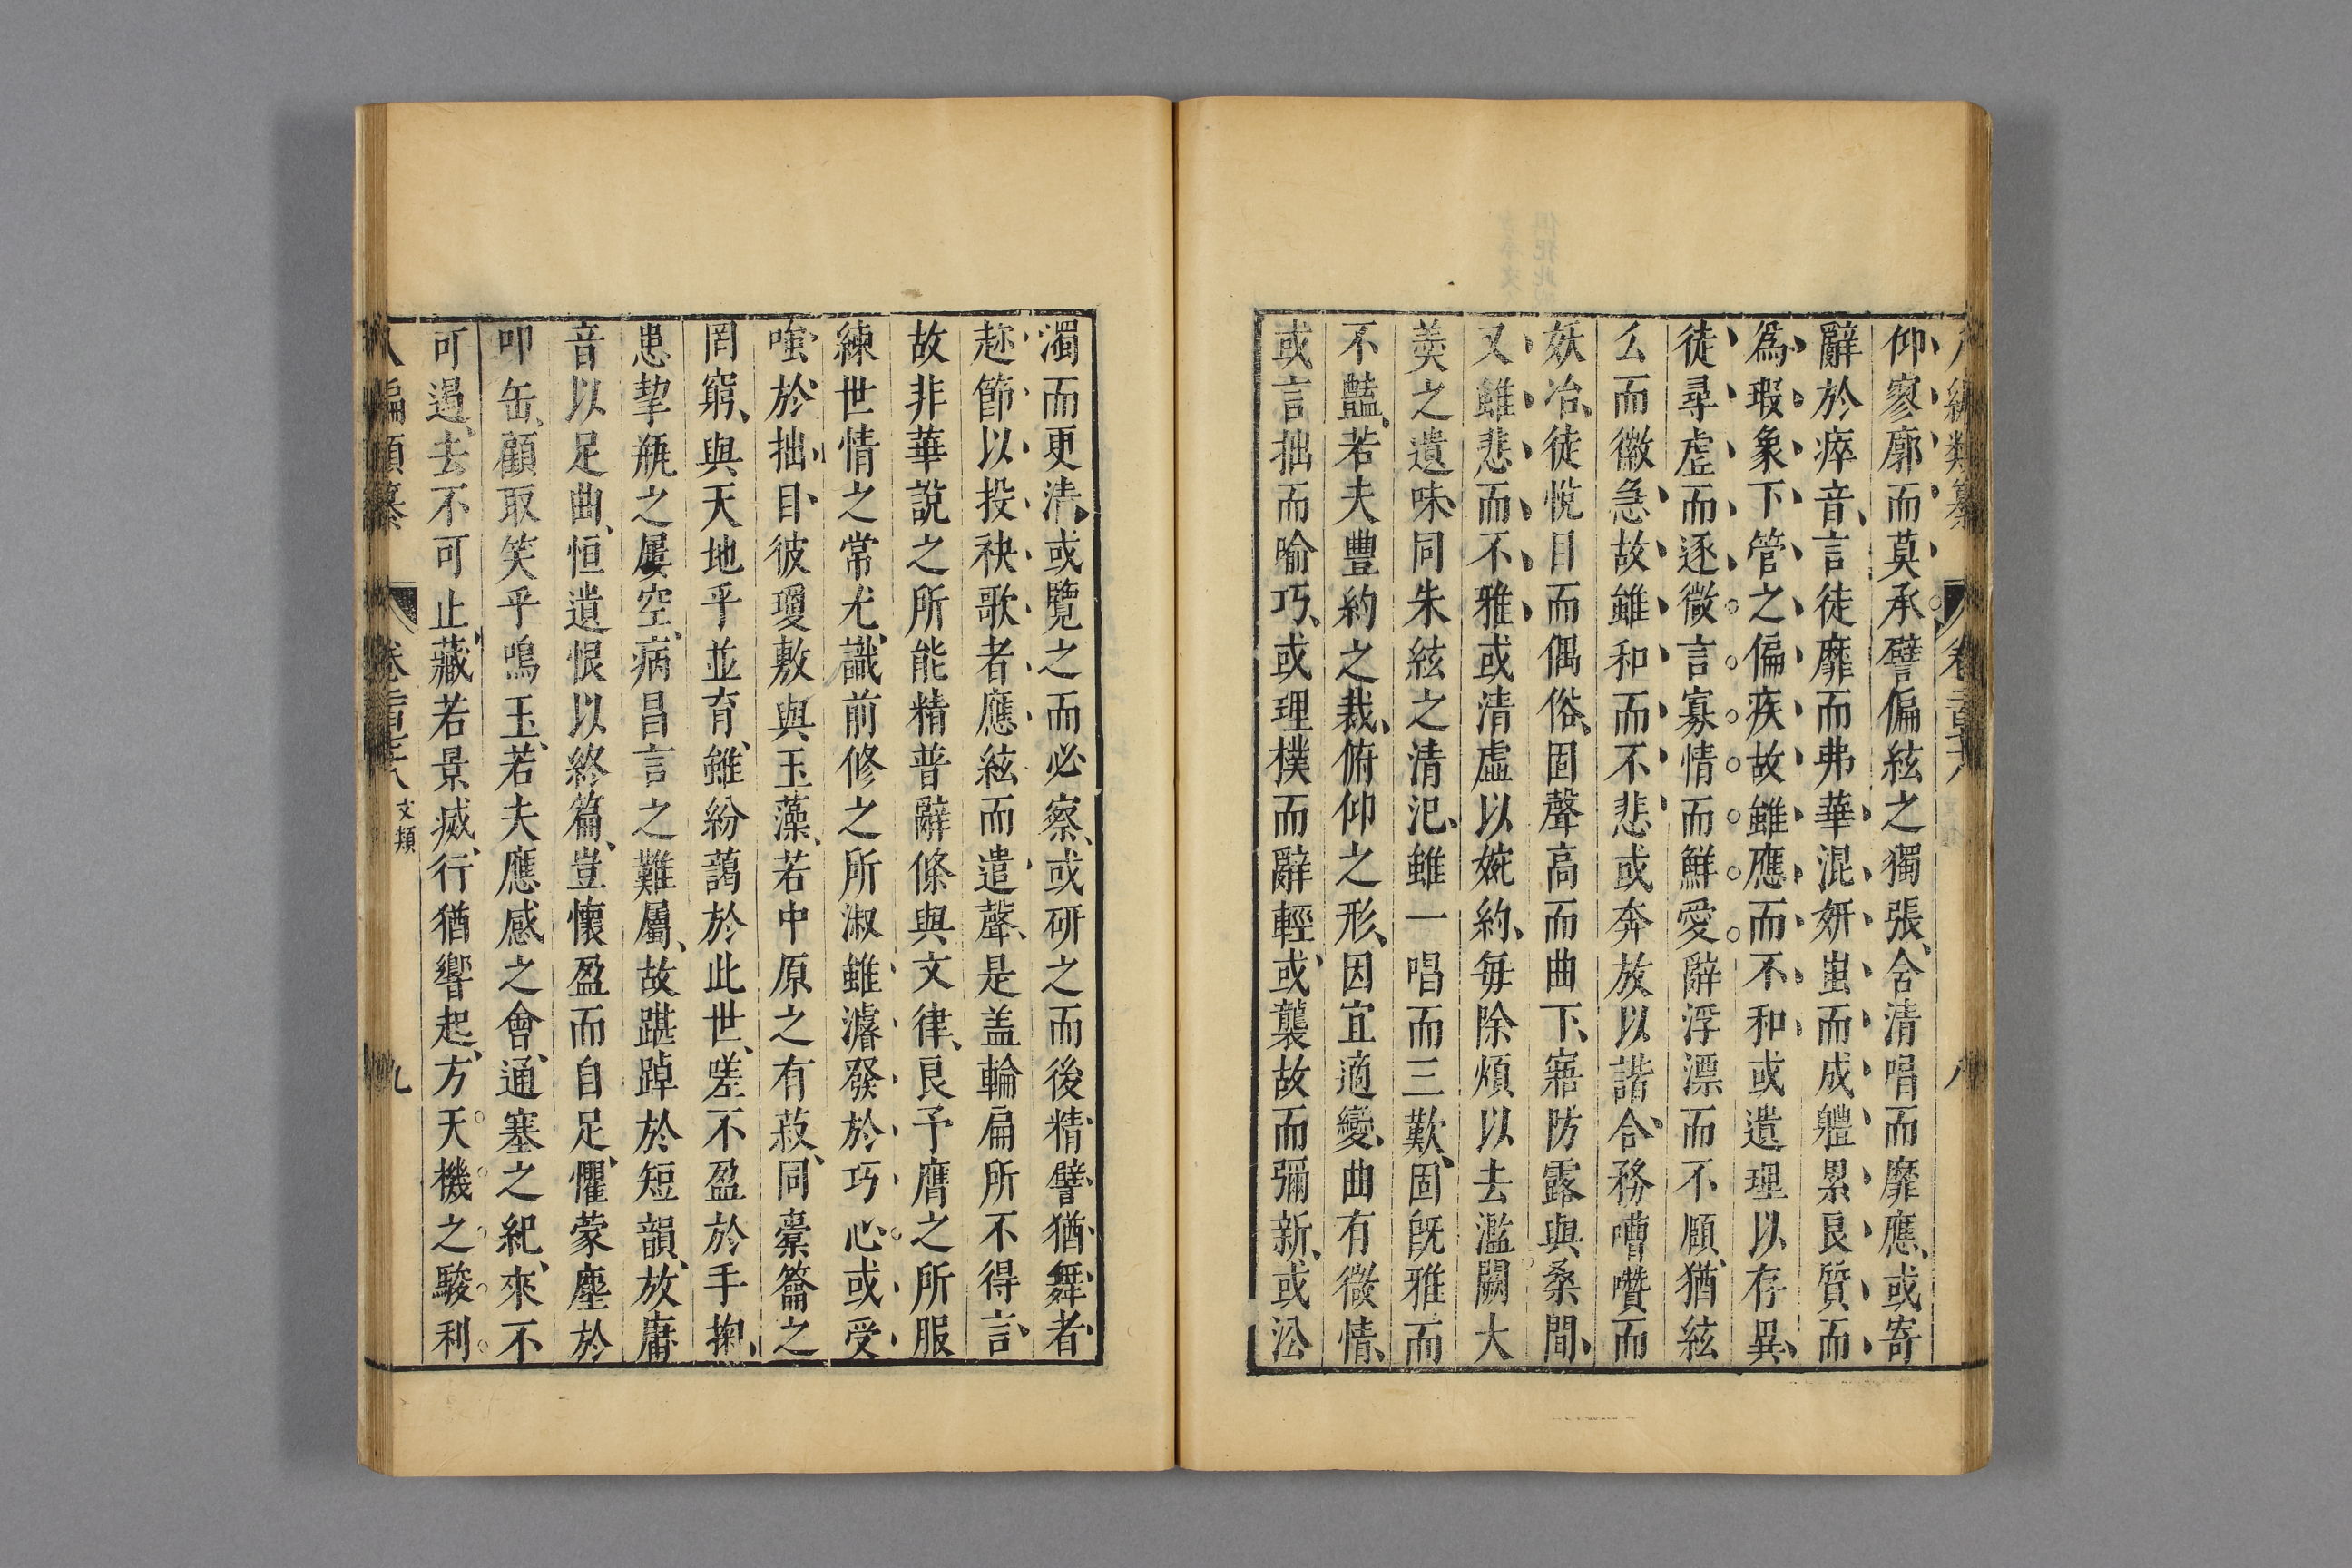 仰寥廓而莫承譬偏絃之獨張含清唱而靡應或寄
辭於瘁音言徒靡而弗華混妍蚩而成軆累良質而
為瑕象下管之偏疾故雖應而不和或遺理以存異
徒尋虛而逐微言寡情而鮮愛辭浮漂而不願猶絃
么而徽急故雖和而不悲或奔放以諧合務嘈囋而
妖冶徒悅目而偶俗固聲高而曲下寤防露與桑間
又雖悲而不雅或清虛以婉約每除煩以去濫闕大
羮之遺味同朱絃之清汜雖一唱而三歎固旣雅而
不豔若夫豐約之裁俯仰之形因宜適變曲有微情
或言拙而喻巧或理樸而辭輕或襲故而彌新或㳂
濁而更清或覽之而必察或研之而後精譬猶舞者
趂節以投袂歌者應絃而遣聲是盖輪扁所不得言
故非華說之所能精普辭條與文律良予膺之所服
練世情之常尤識前修之所淑雖濬發於巧心或受
嗤於拙目彼瓊敷與玉藻若中原之有菽同橐籥之
罔窮與天地乎並育雖紛藹於此世嗟不盈於手掬
患挈瓶之屢空病昌言之難屬故踸踔於短韻放庸
音以足曲恒遺恨以終篇豈懷盈而自足懼蒙塵於
叩缶顧取笑乎鳴玉若夫應感之會通塞之紀來不
可遏去不可止藏若景滅行猶響起方天機之駿利
八編類纂 卷 文類 九